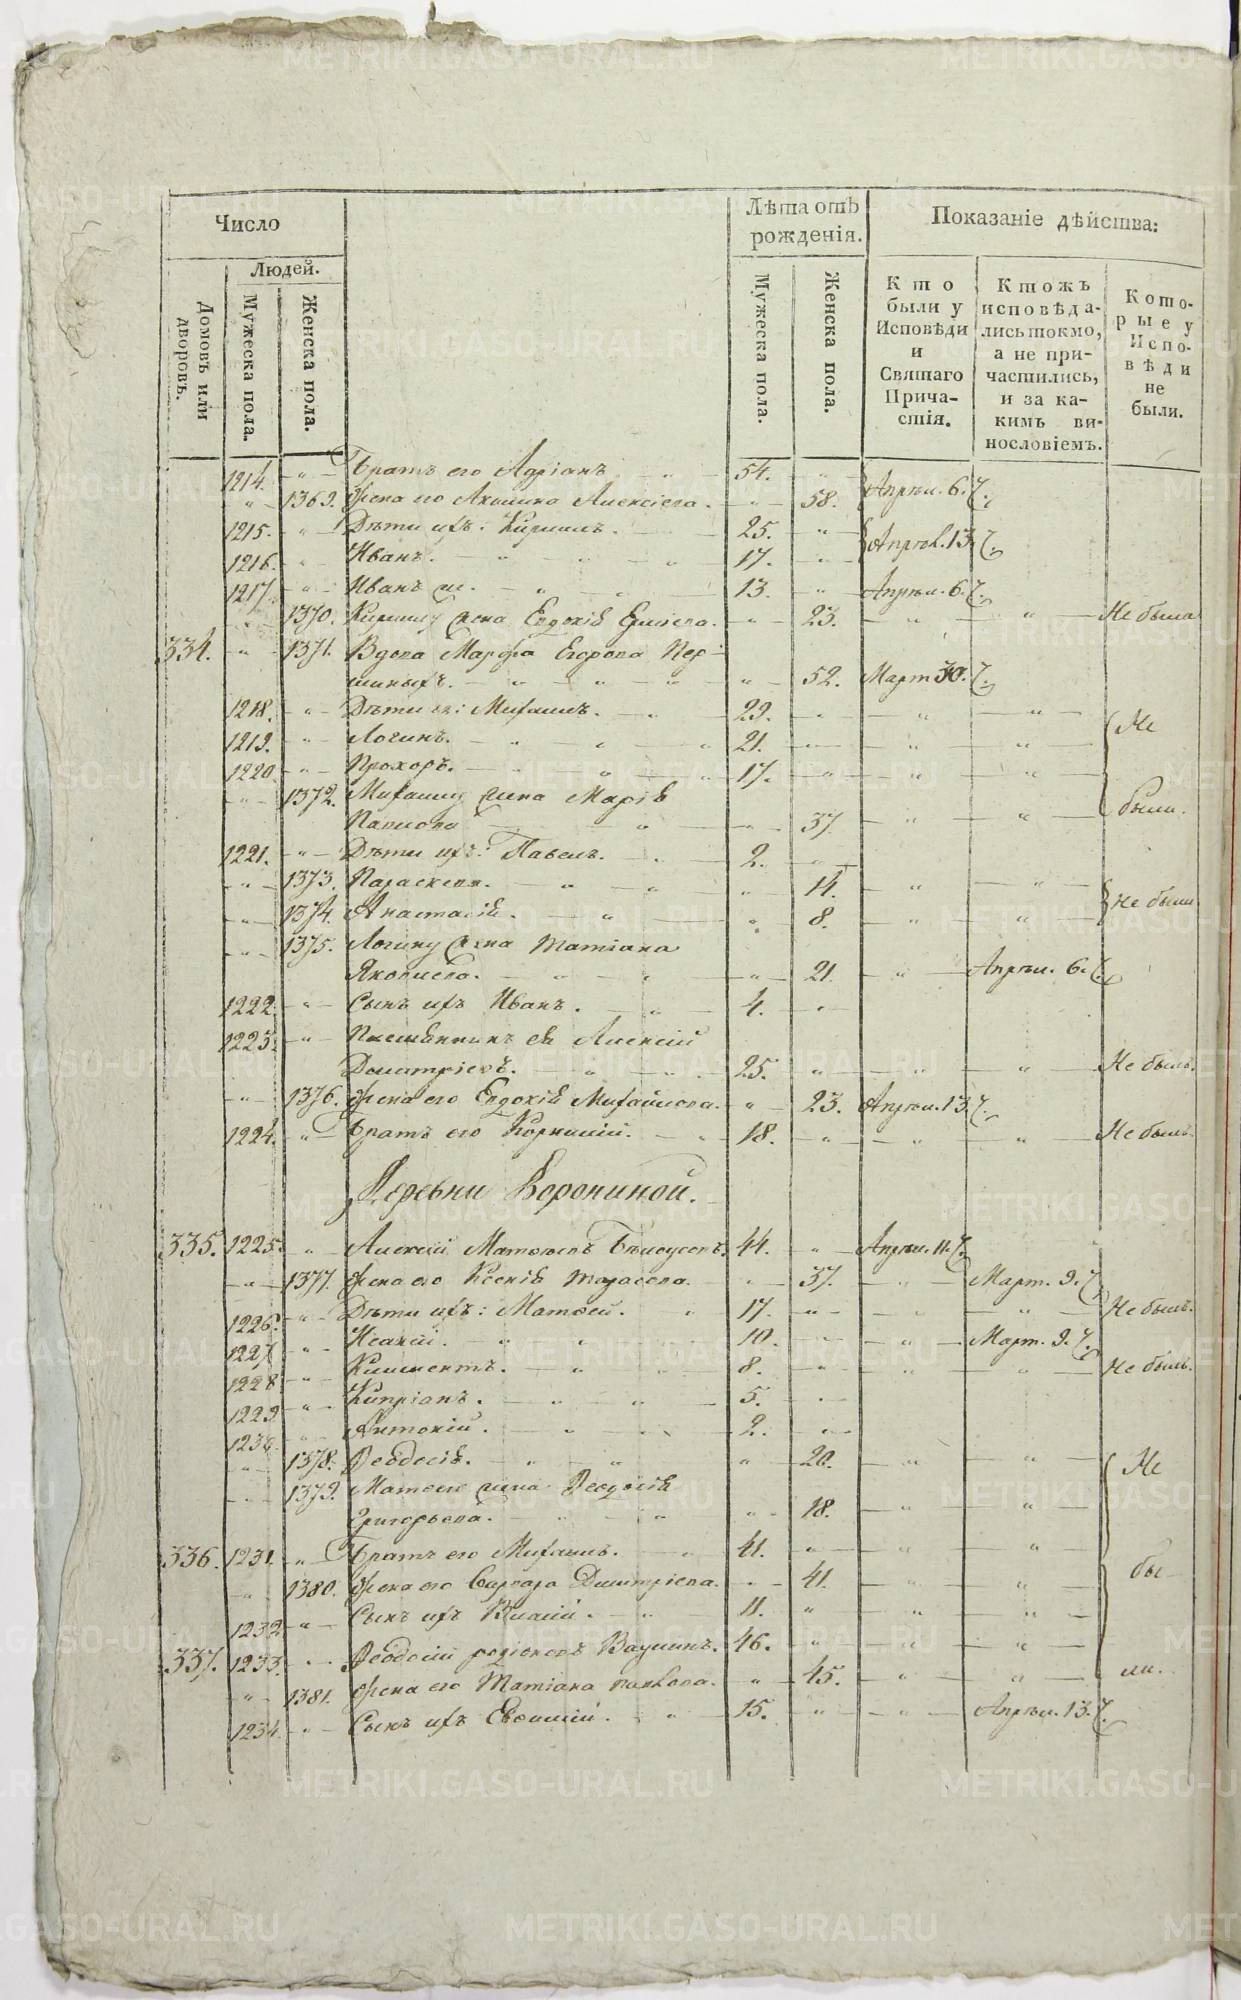 Число
Лѣта отъ рожденія.
Показаніе дѣйства:
Людей.
Домовъ или дворовъ.
Мужеска пола.
Женска пола.
Мужеска пола.
Женска пола.
Кто были у Исповѣди и Святаго Причастія.
Ктожъ исповѣдались токмо, а не причастились, и за какимъ винословіемъ.
Которые у Исповѣди не были.
1214. Братъ его Адріанъ 54. Апрѣл. 6.
1369. Жена его Акилина Алексіева. 58.
1215. Дѣти ихъ: Кириллъ. 25. Апрѣл. 13.
1216. Иванъ. 17.
1217. Иванъ м. 13. Апрѣл. 6.
1370. Кириллу жена Евдокія 23. Не была
334. 1371. Вдова Марфа Егорова Пер-
шиныхъ. 52. Март 30.
1218. Дѣти ея: Михаилъ. 29. Не
1219. Логинъ. 21.
1220. Прохоръ. 17.
1372. Михаилу жена Марія
Павлова 37. были.
1221. Дѣти ихъ: Павелъ. 2.
1373. Параскева. 14.
1374. Анастасія. 8. Не были
1375. Логину жена Татіана
Яковлева. 21. Апрѣл. 6.
1222. Сынъ ихъ Иванъ. 4.
1223. Племянникъ ея Алексій
Димитріевъ. 25. Не былъ.
1376. Жена его Евдокія Михайлова. 23. Апрѣл. 13.
1224. Братъ его Корнилій. 18. Не былъ.
Деревни Ворониной.
335. 1225. Алексій Матѳеевъ Бѣлоусовъ. 44. Апрѣл. 11.
1377. Жена его Ксенія Тарасова. 37. Март. 9.
1226. Дѣти ихъ: Матѳей. 17. Не былъ.
1227. Исакій. 10. Март. 9.
1228. Климентъ. 8. Не былъ.
1229. Кипріанъ. 5.
1230. Антоній. 2.
1378. Ѳеодосія. 20. Не
1379. Матѳею жена Ѳеодосія
Григорьева. 18.
336. 1231. Братъ его Михаилъ. 41.
1380. Жена его Варвара Димитріева. 41. бы-
1232. Сынъ ихъ Власій. 11.
337. 1233. Ѳеодосій Родіоновъ Ваулинъ. 46.
1381. Жена его Татіана Павлова. 45. ли.
1234. Сынъ ихъ Евѳимій. 15. Апрѣл. 13.
METRIKI.GASO-URAL.RU